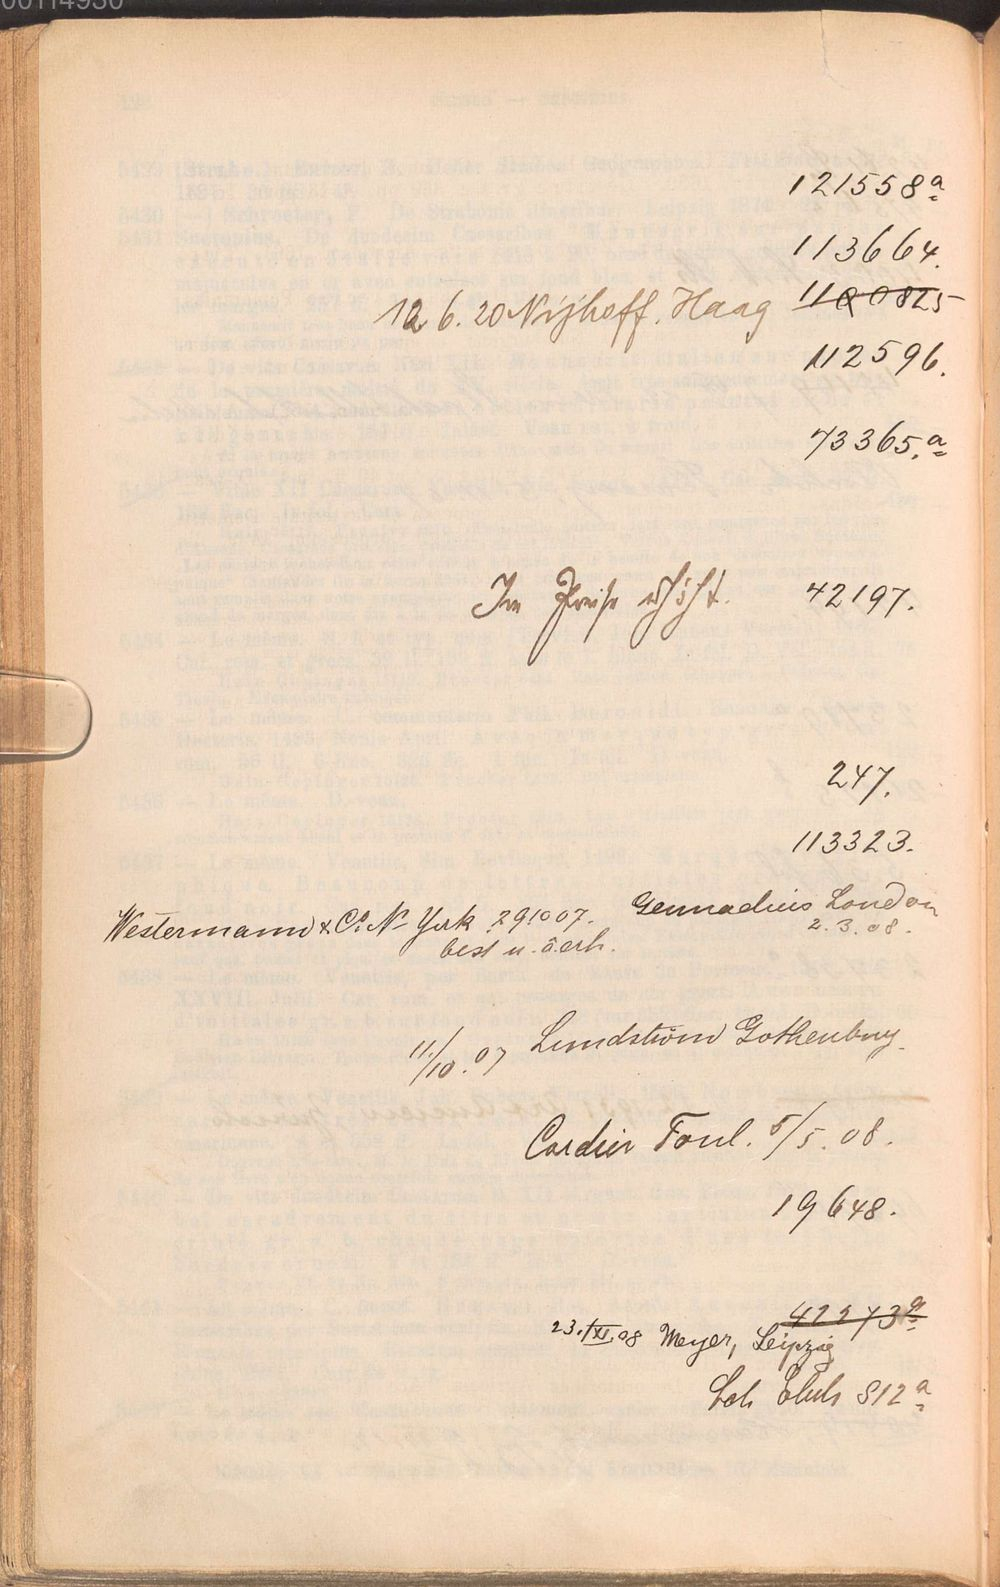 00114930
121558a
113664.
12 6.20 Nijhoff. Haag 110825
112596.
73365.a
Im Preise erhöht. 42197.
247.
113323.
Westermann & Co. N. York 29.10 07. Gennadius London
best u. 2.3.08.
11./10.07 Lundström Gothenburg
Cordier Foul. 5/5.08.
19648.
42273a
23./XI.08 Meyer, Leipzig
812a